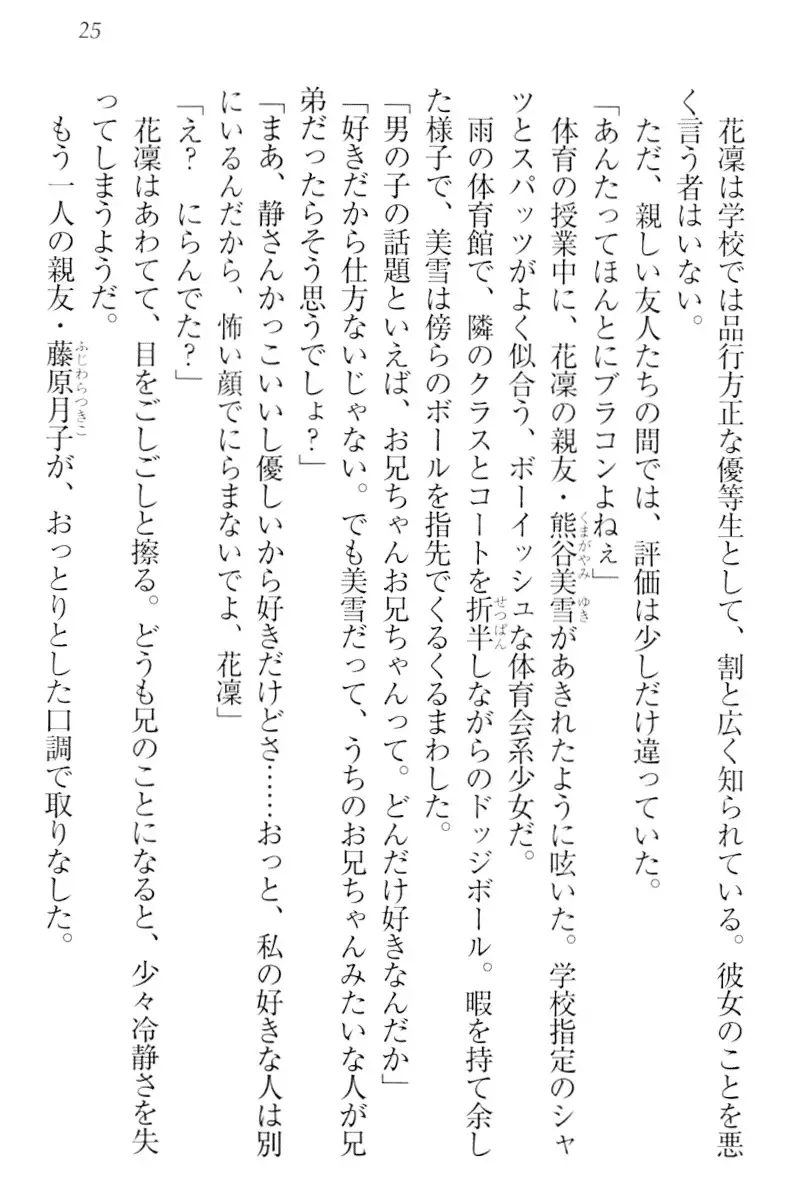 25
花凜は学校では品行方正な優等生として、割と広く知られている。彼女のことを悪
く言う者はいない。
ただ、親しい友人たちの間では、評価は少しだけ違っていた。
「あんたってほんとにブラコンよねぇ」
体育の授業中に、花凜の親友・熊谷美雪があきれたように呟いた。学校指定のシャ
くまがやみ ゆき
ツとスパッツがよく似合う、ボーイッシュな体育会系少女だ。
雨の体育館で、隣のクラスとコートを折半しながらのドッジボール。暇を持て余し
せっぱん
た様子で、美雪は傍らのボールを指先でくるくるまわした。
「男の子の話題といえば、お兄ちゃんお兄ちゃんって。どんだけ好きなんだか」
「好きだから仕方ないじゃない。でも美雪だって、うちのお兄ちゃんみたいな人が兄
弟だったらそう思うでしょ？」
「まあ、静さんかっこいいし優しいから好きだけどさ……おっと、私の好きな人は別
にいるんだから、怖い顔でにらまないでよ、花凜」
「え？　にらんでた？」
花凜はあわてて、目をごしごしと擦る。どうも兄のことになると、少々冷静さを失
ってしまうようだ。
もう一人の親友・藤原月子が、おっとりとした口調で取りなした。
ふじわらつきこ